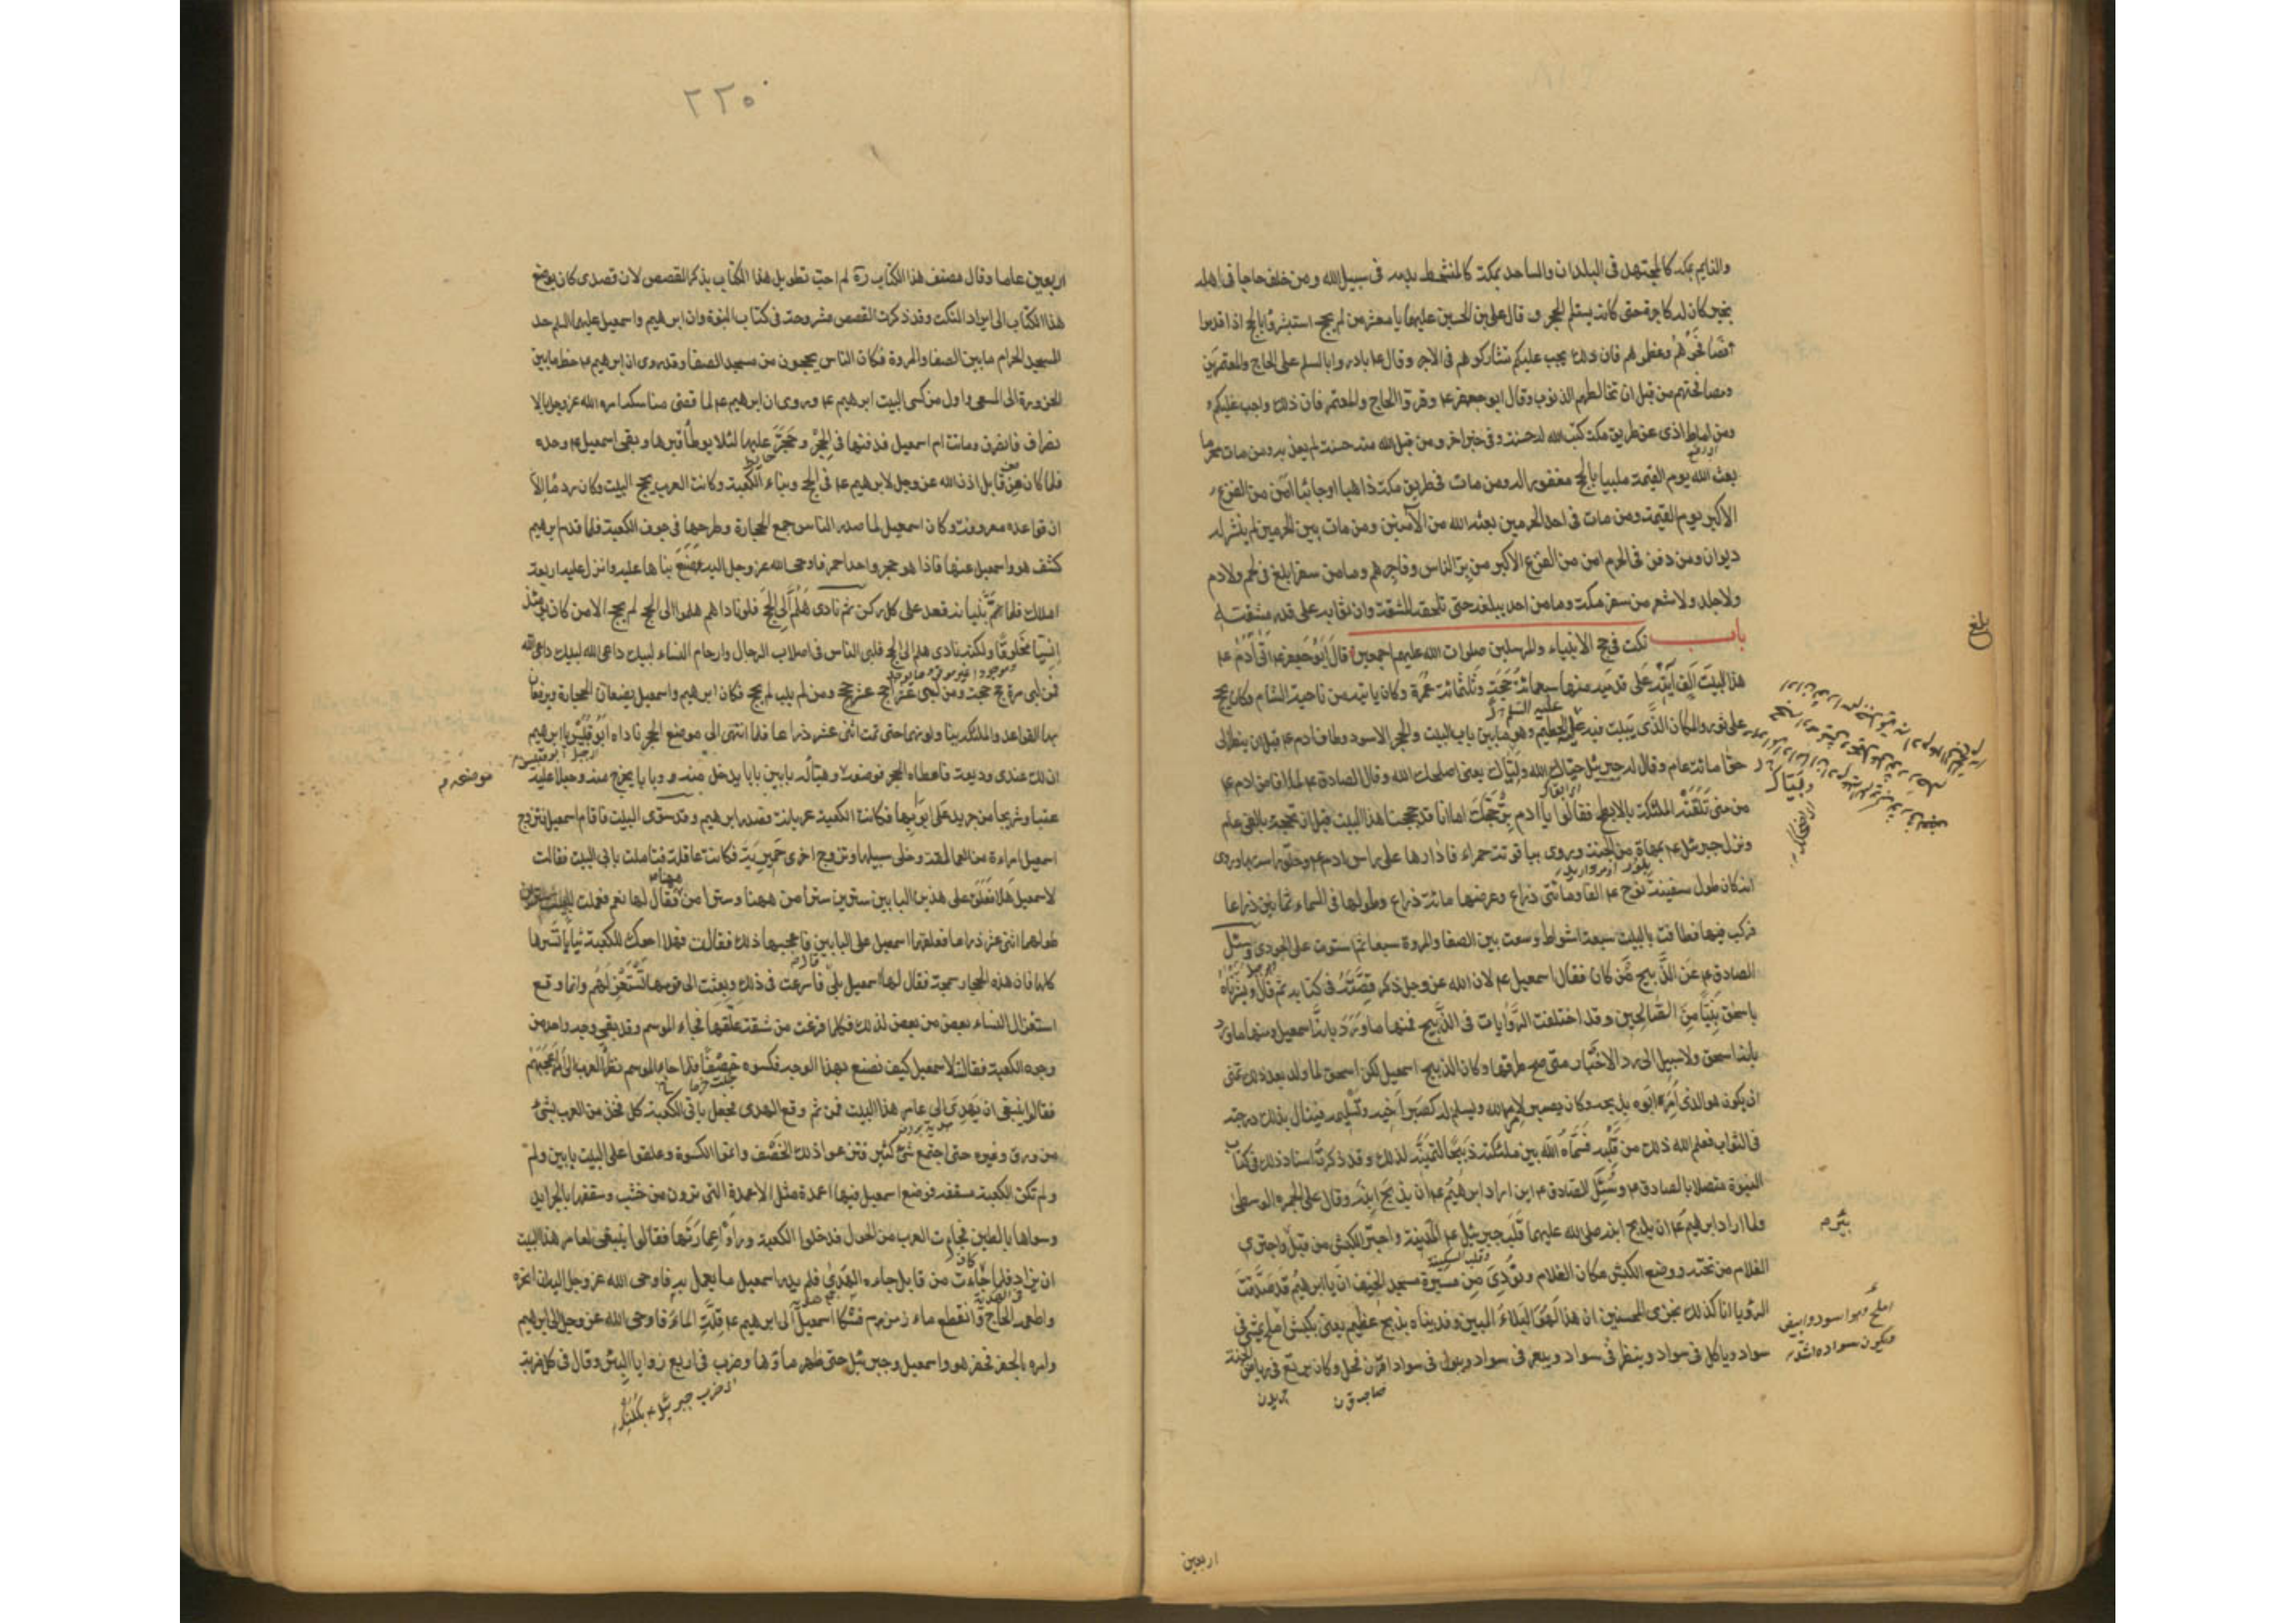 والنايم بمكة كالمجتهد فى البلدان والساجد بمكة كالمتشحط بدمه فى سبيل الله ومن خلف حاجا فى اهله
بخير كان له كاجره حتى كانه يستلم الحجر وقال على بن الحسين عليهما يا معشر من لم يحج استبشروا بالحج اذا قدموا
فصافحوهم وعظموهم فان ذلك يجب عليكم تشاركوهم فى الاجر وقال ع بادروا بالسلم على الحاج والمعتمرين
ومصافحتهم من قبل ان تخالطهم الذنوب وقال ابو جعفر ع وقروا الحاج والمعتمر فان ذلك واجب عليكم
ومن اماط اذى عن طريق مكة كتب الله له حسنة وفى خبر اخر ومن قبل الله منه حسنة لم يعذبه ومن مات محرما
بعثه الله يوم القيمة ملبيا بالحج مغفورا له ومن مات فى طريق مكة ذاهبا او جائيا امن من الفزع
الاكبر يوم القيمة ومن مات فى احد الحرمين بعثه الله من الآمنين ومن مات بين الحرمين لم ينشر له
ديوان ومن دفن فى الحرم امن من الفزع الاكبر من بر الناس وفاجرهم وما من سفر ابلغ فى لحم ولا دم
ولا جلد ولا شعر من سفر مكة وما من احد يبلغه حتى تلحقه المشقة وان ثوابه على قدر مشقته
باب نكت فى حج الانبياء والمرسلين صلوات الله عليهم اجمعين قال ابو جعفر ع اتى آدم ع
هذا البيت الف آتية على قدميه منها سبعمائة حجة وثلثمائة عمرة وكان ياتيه من ناحية الشام وكان يحج
على ثور والمكان الذى يبيت فيه الحطيم وهو ما بين باب البيت والحجر الاسود وطاف ادم ع قبل ان ينظر الى
حوا مائة عام وقال له جبرئيل حياك الله ولبياك يعنى اصلحك الله وقال الصادق ع لما افاض ادم ع
من منى تلقته الملئكة بالابطح فقالوا يا ادم بر حجك اما انا قد حججنا هذا البيت قبل ان تحجه بالفى عام
ونزل جبرئيل ع بمهاة من الجنة وروى بياقوتة حمراء فادارها على راس ادم ع وحلق راسه بها وروى
انه كان طول سفينة نوح ع الفا ومائتى ذراع وعرضها مائة ذراع وطولها فى السماء ثمانين ذراعا
فركب فيها فطافت بالبيت سبعة اشواط وسعت بين الصفا والمروة سبعا ثم استوت على الجودى وسئل
الصادق ع عن الذبيح من كان فقال اسمعيل ع لان الله عز وجل ذكر قصته فى كتابه ثم قال وبشرناه
باسحق نبيا من الصالحين وقد اختلفت الروايات فى الذبيح فمنها ما ورد بانه اسمعيل ومنها ما ورد
بانه اسحق ولا سبيل الى رد الاخبار متى صح طرقها وكان الذبيح اسمعيل لكن اسحق لما ولد بعد ذلك تمنى
ان يكون هو الذى امر ابوه بذبحه وكان يصبر لامر الله ويسلم له كصبر اخيه وتسليمه فينال بذلك درجته
فى الثواب فعلم الله ذلك من قلبه فسماه الله بين ملئكته ذبيحا لتمنيه لذلك وقد ذكرت اسناد ذلك فى كتاب
النبوة متصلا بالصادق ع وسئل الصادق ع اين اراد ابراهيم ع ان يذبح ابنه وقال على الجمرة الوسطى
ولما اراد ابرهيم ع ان يذبح ابنه صلى الله عليهما قلب جبرئيل ع المدية واجتر الكبش من قبل واجتر
الغلام من تحته ووضع الكبش مكان الغلام ونودى من ميسرة مسجد الخيف ان يا ابرهيم قد صدقت
الرؤيا انا كذلك نجزى المحسنين ان هذا لهو البلاء المبين وفديناه بذبح عظيم يعنى بكبش املح يمشى فى
سواد وياكل فى سواد وينظر فى سواد ويبعر فى سواد ويبول فى سواد اقرن فحل وكان يرتع فى رياض الجنة
بلغ
املح وهو اسود وابيض
فيكون سواده اشد
اربعين
٢٢٥
اربعين عاما وقال مصنف هذا الكتاب ره لم احب تطويل هذا الكتاب بذكر القصص لان قصدى كان بوضع
هذا الكتاب الى ايراد النكت وقد ذكرت القصص مشروحة فى كتاب النبوة وان ابرهيم واسمعيل عليهما السلم حد
المسجد الحرام ما بين الصفا والمروة فكان الناس يحجون من مسجد الصفا وقد روى ان ابرهيم ع خط ما بين
الحزورة الى المسعى واول من كسى البيت ابرهيم ع وروى ان ابرهيم ع لما قضى مناسكه امره الله عز وجل بالا
نصراف فانصرف وماتت ام اسمعيل فدفنها فى الحجر وحجر عليها لئلا يوطأ قبرها وبقى اسمعيل ع وحده
فلما كان من قابل اذن الله عز وجل لابرهيم ع فى الحج وبناء الكعبة وكانت العرب يحج البيت وكان ردما الا
ان قواعده معروفة وكان اسمعيل لما صدر الناس جمع الحجارة وطرحها فى جوف الكعبة فلما قدم ابرهيم
كشف هو واسمعيل عنها فاذا هو حجر واحد احمر فاوحى الله عز وجل اليه ضع بناها عليه وانزل عليه اربعة
املاك فلما تم بنيانه قعد على كل ركن ثم نادى هلم الى الحج فلو ناداهم هلموا الى الحج لم يحج الا من كان يومئذ
انسيا مخلوقا ولكنه نادى هلم الى الحج فلبى الناس فى اصلاب الرجال وارحام النساء لبيك داعى الله لبيك داعى الله
فمن لبى مرة حج حجة ومن لبى عشرا حج عشر حجج ومن لم يلب لم يحج فكان ابرهيم واسمعيل يضعان الحجارة ويرفعان
بها القواعد والملئكة يناولونهما حتى تمت اثنى عشر ذراعا فلما انتهى الى موضع الحجر ناداه ابو قبيس يا ابرهيم
ان لك عندى وديعة فاعطاه الحجر فوضعه وهيأ له بابين بابا يدخل منه وبابا يخرج منه وجعلا عليه
عتبا وشريجا من جريد على ابوابها فكانت الكعبة عريانة فصدر ابرهيم وقد سوى البيت فاقام اسمعيل فتزوج
اسمعيل امراءة من العمالقة وخلى سبيلها وتزوج اخرى حميرية فكانت عاقلة فتاملت بابى البيت فقالت
لاسمعيل هلا تعلق على هذين البابين سترين سترا من ههنا وسترا من ههنا فقال لها نعم فعملت للبيت سترين
طولهما اثنى عشر ذراعا فعلقهما اسمعيل على البابين فاعجبها ذلك فقالت فهلا احوك للكعبة ثيابا تسترها
كلها فان هذه الحجارة سمجة فقال لها اسمعيل بلى فاسرعت فى ذلك وبعثت الى قومها تستغزلهم وانما وقع
استغزال النساء بعضهن من بعض لذلك فكلما فرغت من شقة علقها فجاء الموسم وقد بقى وجه واحد من
وجوه الكعبة فقالت لاسمعيل كيف نصنع بهذا الوجه فكسوه خصفا فلما جاء الموسم نظر العرب الى امر اعجبهم
فقالوا ينبغى ان يهدى الى عامر هذا البيت فمن ثم وقع الهدى فجعل ياتى الكعبة كل فخذ من العرب بشئ
من ورق وغيره حتى اجتمع شئ كثير فنزعوا ذلك الخصف واتموا الكسوة وعلقوا على البيت بابين ولم
ولم تكن الكعبة مسقفة فوضع اسمعيل فيها اعمدة مثل الاعمدة التى ترون من خشب وسقفها بالجرايد
وسواها بالطين فجاءت العرب من الحول فدخلوا الكعبة وراوا عمارتها فقالوا ينبغى لعامر هذا البيت
ان يزاد فلما جاءت من قابل جاءه الهدى فلم يدر اسمعيل ما يعمل به فاوحى الله عز وجل اليه ان انحره
واطعمه الحاج وانقطع ماء زمزم فشكا اسمعيل الى ابرهيم ع قلة الماء فاوحى الله عز وجل الى ابرهيم
وامره بالحفر فحفر هو واسمعيل وجبرئيل حتى ظهر ماؤها وضرب فى اربع زوايا البئر وقال فى كل ضربة